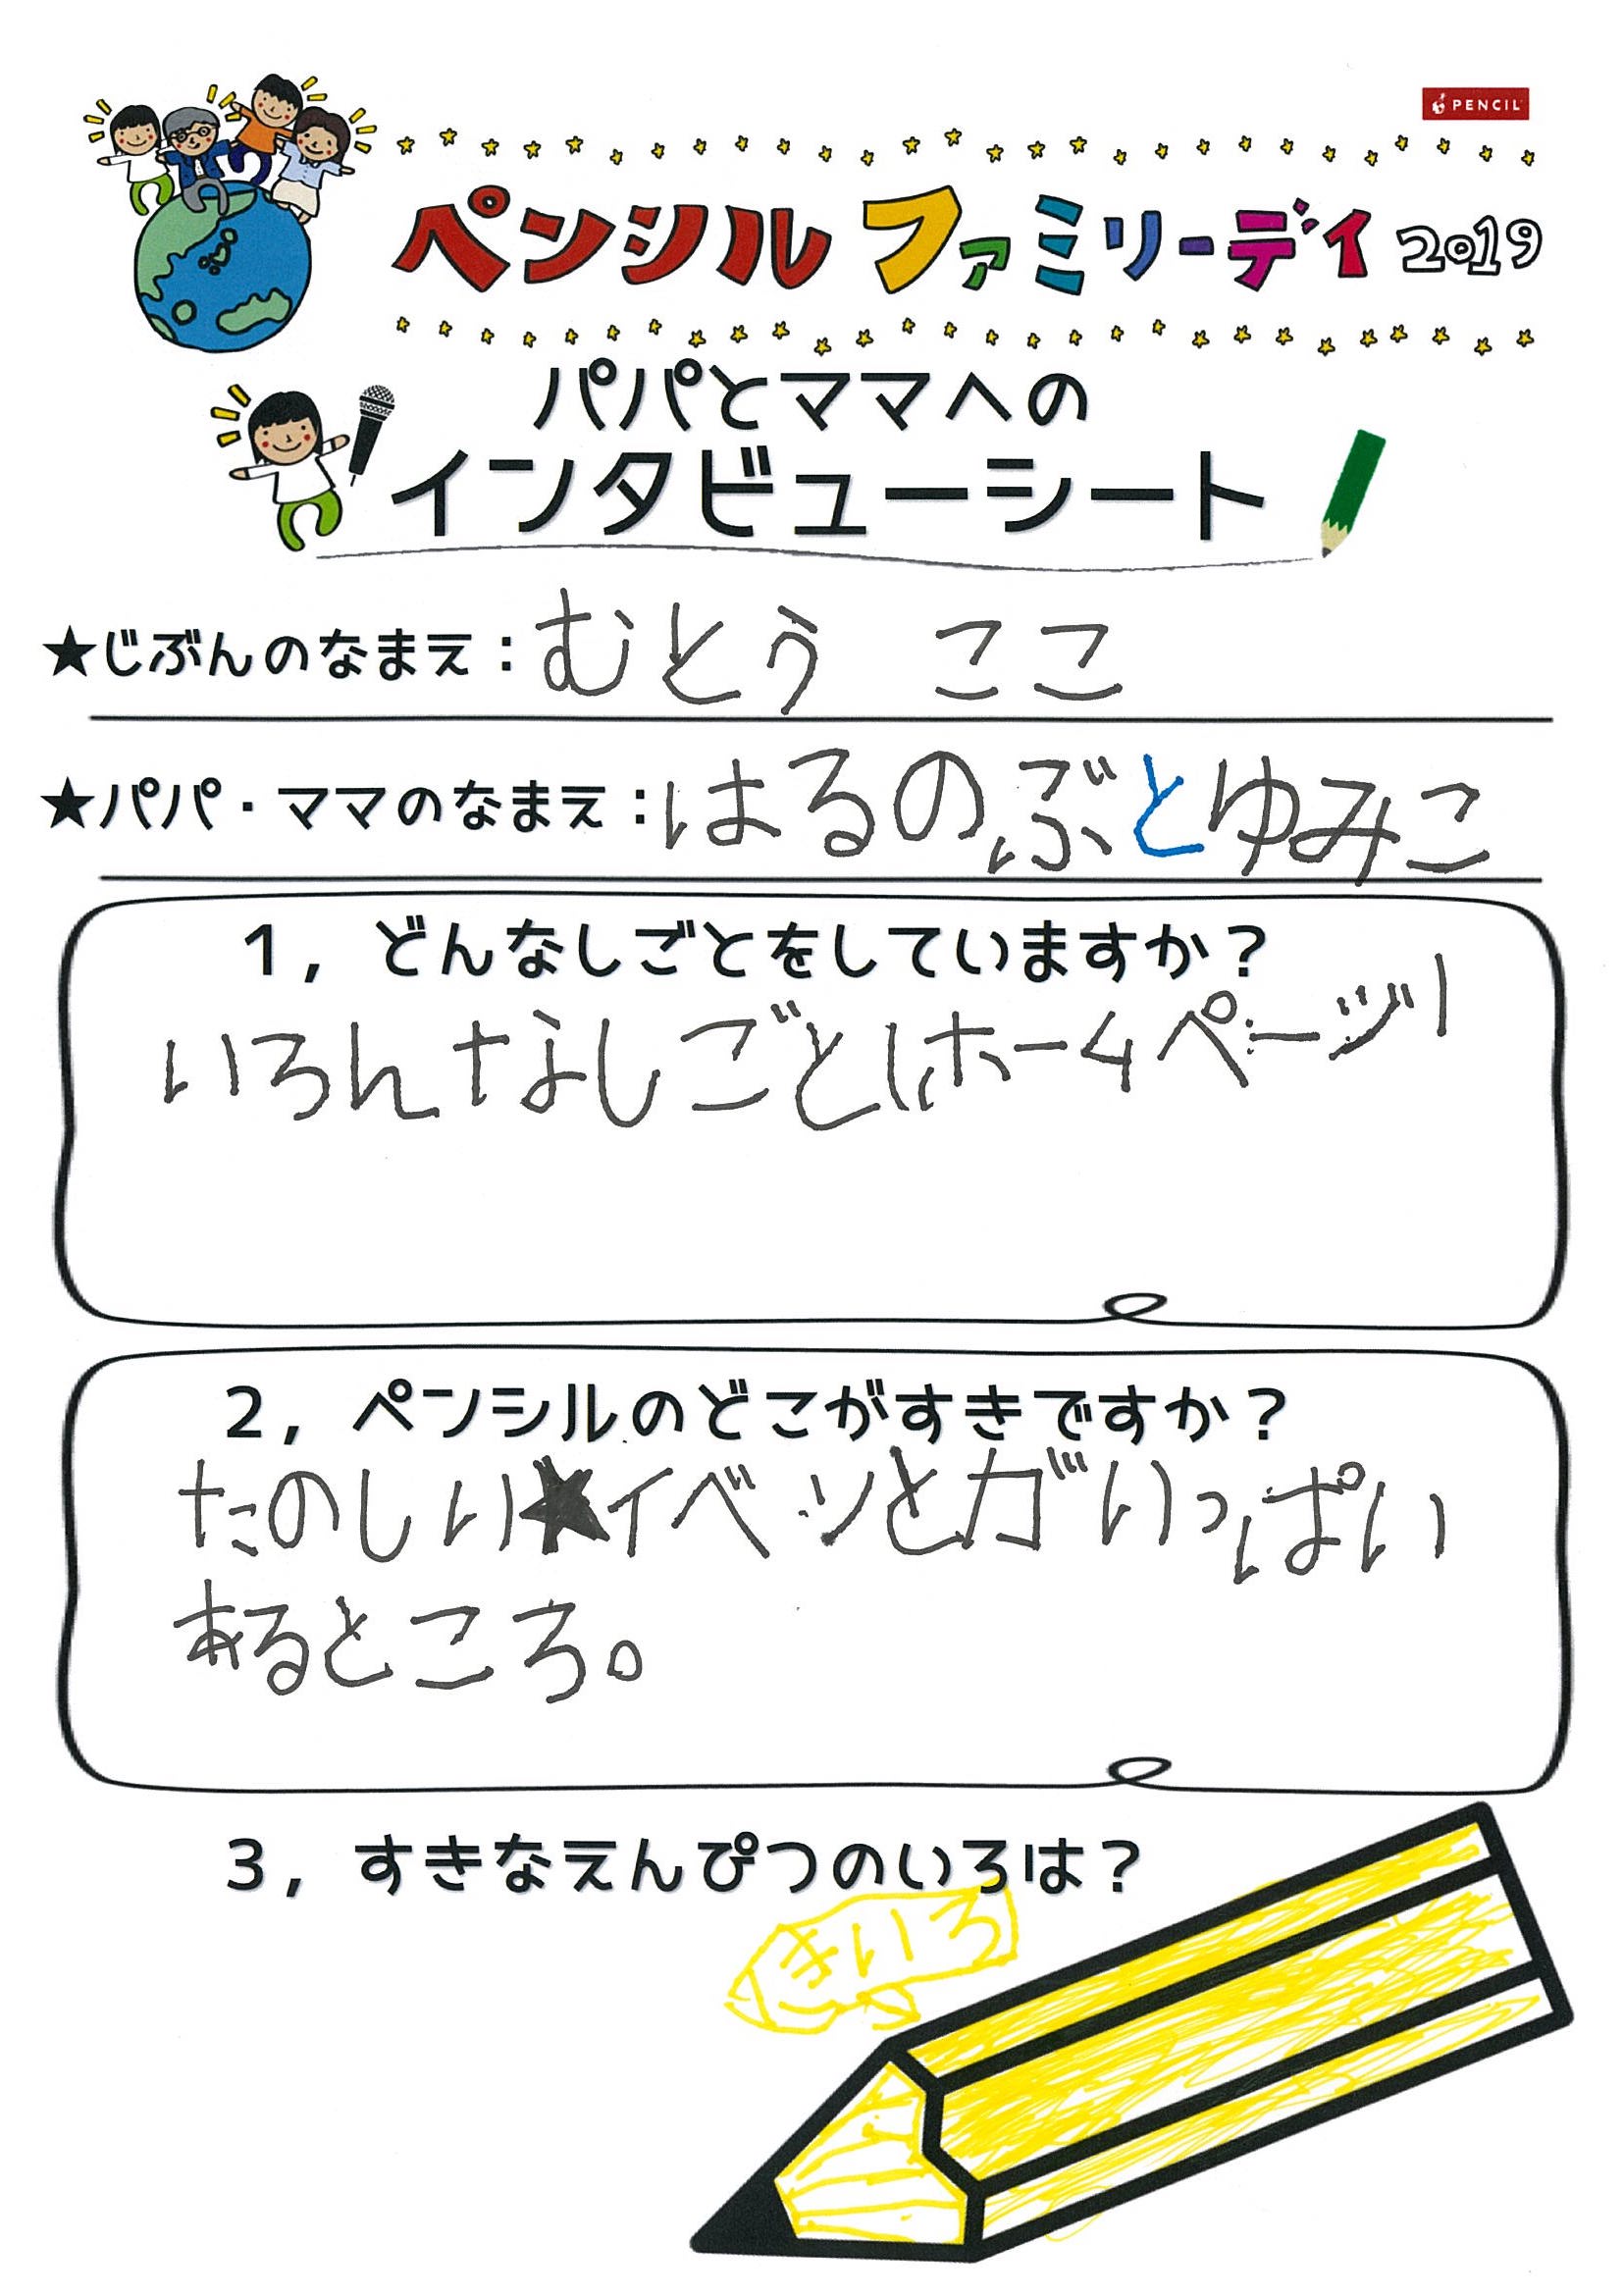 PENCIL
ペンシル ファミリーデイ 2019
パパとママへの
インタビューシート
★じぶんのなまえ：むとう ここ
★パパ・ママのなまえ：はるのぶとゆみこ
1, どんなしごとをしていますか？
いろんなしごとはホームページ
2, ペンシルのどこがすきですか？
たのしい★イベントがいっぱい
あるところ。
3, すきなえんぴつのいろは？
きいろ